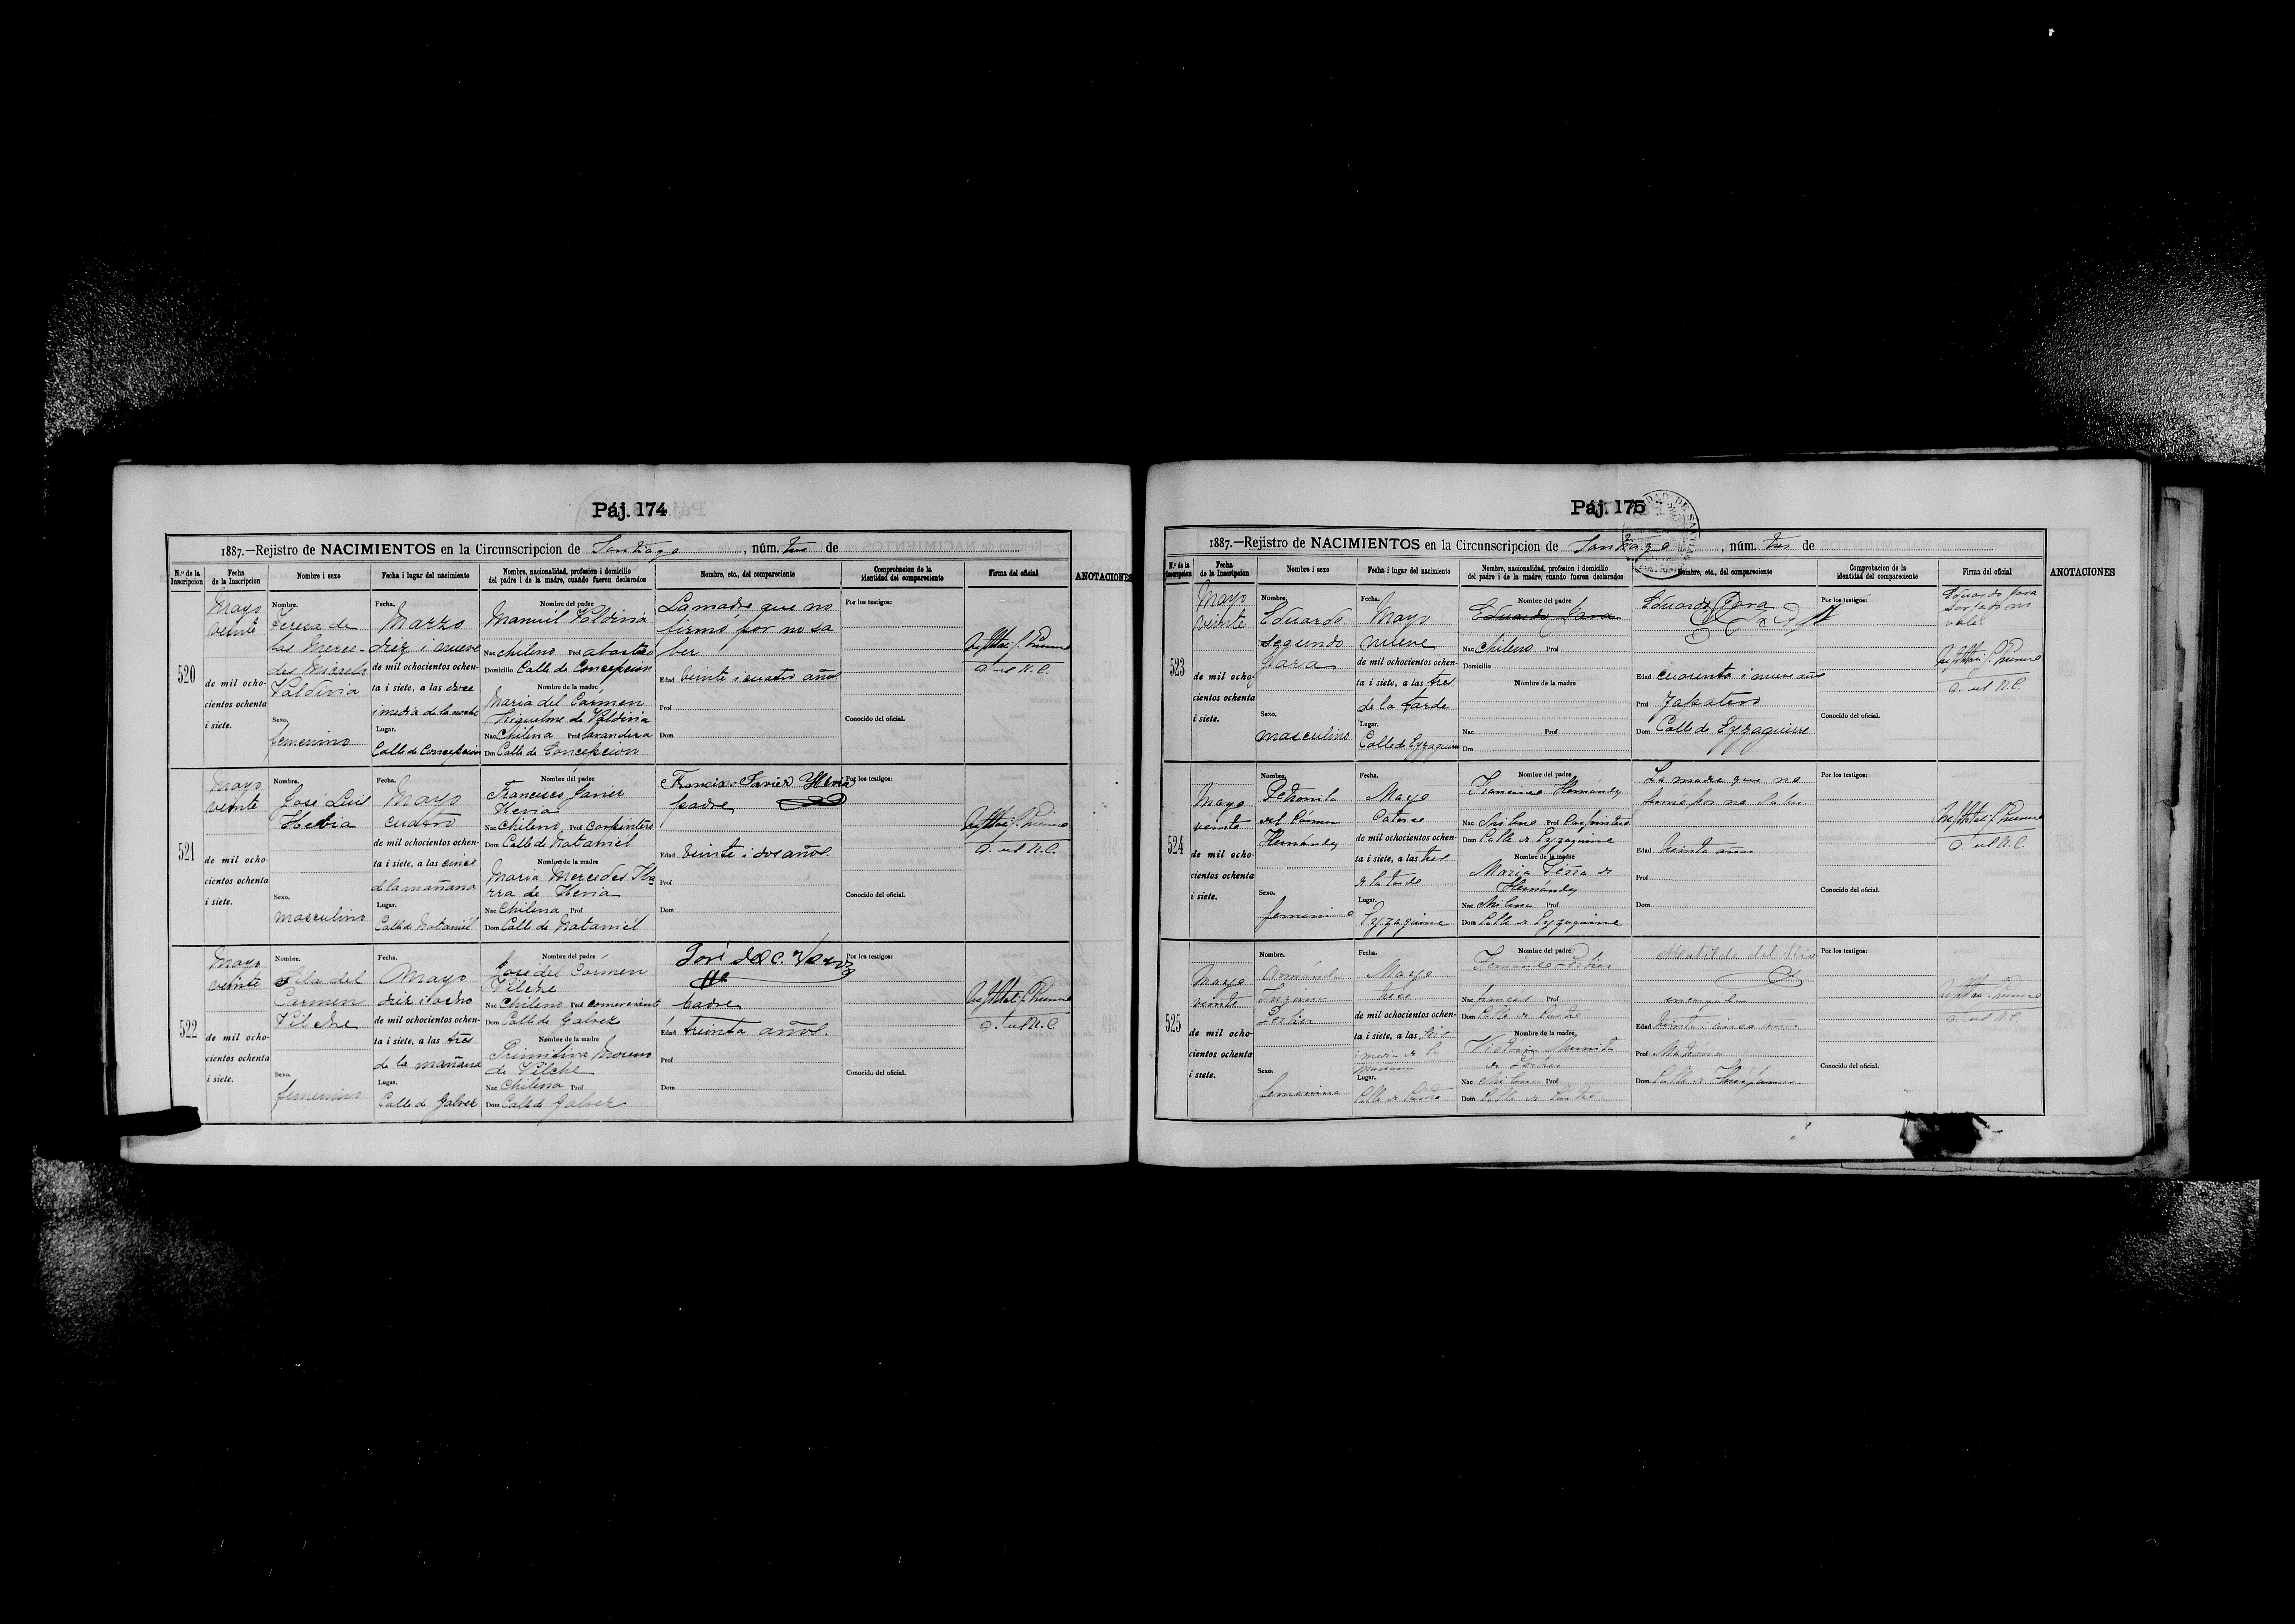 Páj. 174
1887.—Rejistro de NACIMIENTOS en la Circunscripcion de Santiago, núm. tres de
N.º de la Inscripcion
Fecha de la Inscripcion
Nombre i sexo
Fecha i lugar del nacimiento
Nombre, nacionalidad, profesion i domicilio del padre i de la madre, cuando fueren declarados
Nombre, etc., del compareciente
Comprobacion de la identidad del compareciente
Firma del oficial
ANOTACIONES
520
Mayo
veinte
de mil ocho-
cientos ochenta
i siete.
Nombre.
Teresa de
las Merce-
des Micaela
Valdivia
Sexo.
femenino
Fecha.
Marzo
diez i nueve
de mil ochocientos ochen-
ta i siete, a las doce
i media de la noche
Lugar.
Calle de Concepcion
Nombre del padre
Manuel Valdivia
Nac chileno Prof abastero
Domicilio Calle de Concepcion
Nombre de la madre
Maria del Cármen
de Valdivia
Nac Chilena Prof lavandera
Dm Calle de Concepcion
La madre que no
firmó por no sa
ber
Edad veinte i cuatro años
Prof
Dom
Por los testigos:
Conocido del oficial.
O. del R.C.
521
Mayo
veinte
de mil ocho
cientos ochenta
i siete.
Nombre.
José Luis
Hevia
Sexo.
masculino
Fecha.
Mayo
cuatro
de mil ochocientos ochen-
ta i siete, a las cinco
de la mañana
Lugar.
Calle de Nataniel
Nombre del padre
Francisco Javier
Hevia
Nac Chileno Prof Carpintero
Dom Calle de Nataniel
Nombre de la madre
Maria Mercedes Iba
rra de Hevia
Nac Chilena Prof
Dom Calle de Nataniel
Francisco Javier Hevia
padre
Edad veinte i dos años.
Prof
Dom
Por los testigos:
Conocido del oficial.
O. del R.C.
522
Mayo
veinte
de mil ocho-
cientos ochenta
i siete.
Nombre.
Ela del
Carmen
Vilche
Sexo.
femenino
Fecha.
Mayo
diez i ocho
de mil ochocientos ochen-
ta i siete, a las tres
de la mañana
Lugar.
Calle de Galvez
Nombre del padre
José del Cármen
Vilche
Nac Chileno Prof comerciante
Dom Calle de Galvez
Nombre de la madre
Primitiva Moreno
de Vilche
Nac Chilena Prof
Dom Calle de Galvez
José del C.
padre
Edad treinta años.
Prof
Dom
Por los testigos:
Conocido del oficial.
O. del R.C.
Páj. 175
1887.—Rejistro de NACIMIENTOS en la Circunscripcion de Santiago, núm. tres de
N.º de la Inscripcion
Fecha de la Inscripcion
Nombre i sexo
Fecha i lugar del nacimiento
Nombre, nacionalidad, profesion i domicilio del padre i de la madre, cuando fueren declarados
Nombre, etc., del compareciente
Comprobacion de la identidad del compareciente
Firma del oficial
ANOTACIONES
523
Mayo
veinte
de mil ocho-
cientos ochenta
i siete.
Nombre.
Eduardo
segundo
Jara
Sexo.
masculino
Fecha.
Mayo
nueve
de mil ochocientos ochen-
ta i siete, a las tres
de la tarde
Lugar.
Calle de Eyzaguirre
Nombre del padre
Eduardo Jara
Nac Chileno Prof
Domicilio
Nombre de la madre
Nac Prof
Dm
Eduardo Jara
Edad cuarenta i nueve años
Prof Zapatero
Dom Calle de Eyzaguirre
Por los testigos:
Conocido del oficial.
Eduardo Jara
borrado no
vale.
O. del R.C.
524
Mayo
veinte
de mil ocho-
cientos ochenta
i siete.
Nombre.
Petronila
del Cármen
Hernández
Sexo.
femenino
Fecha.
Mayo
Catorce
de mil ochocientos ochen-
ta i siete, a las tres
de la tarde
Lugar.
Eyzaguirre
Nombre del padre
Francisco Hernández
Nac Chileno Prof Carpintero
Dom Calle de Eyzaguirre
Nombre de la madre
Maria Peña de
Hernández
Nac Chilena Prof
Dom Calle de Eyzaguirre
La madre que no
firmó por no saber
Edad treinta años
Prof
Dom
Por los testigos:
Conocido del oficial.
O. del R.C.
525
Mayo
veinte
de mil ocho-
cientos ochenta
i siete.
Nombre.
Sexo.
femenino
Fecha.
Mayo
trece
de mil ochocientos ochen-
ta i siete, a las
i media de la
mañana
Lugar.
Calle de
Nombre del padre
Nac francés Prof
Dom Calle de
Nombre de la madre
Nac Chilena Prof
Dom Calle de
Matilde del Rio
Edad treinta i cinco años
Prof Matrona
Dom Calle de
Por los testigos:
Conocido del oficial.
O. del R.C.